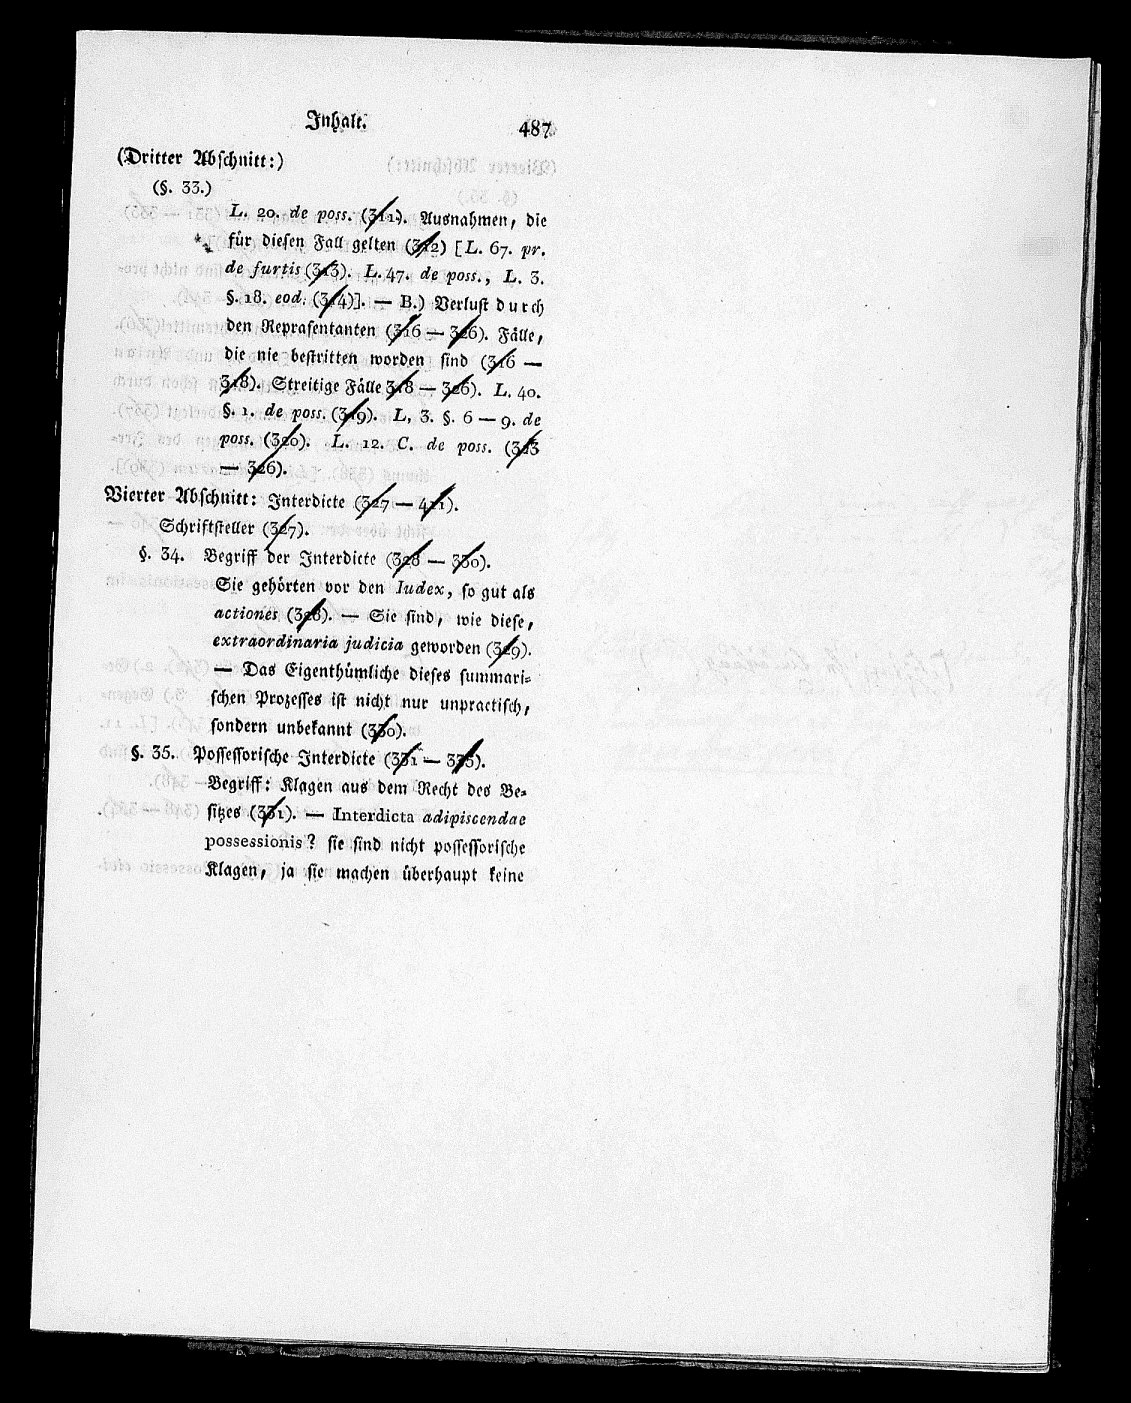 Inhalt. 487
(Dritter Abschnitt:)
(§. 33.)
L. 20. de poss. (311). Ausnahmen, die
für diesen Fall gelten (312) [L. 67. pr.
de furtis (313). L. 47. de poss., L. 3.
§. 18. eod. (314)]. — B.) Verlust durch
den Repräsentanten (316 — 326). Fälle,
die nie bestritten worden sind (316 —
318). Streitige Fälle 318 — 326). L. 40.
§. 1. de poss. (319). L, 3. §. 6 — 9. de
poss. (320). L. 12. C. de poss. (323
— 326).
Vierter Abschnitt: Interdicte (327 — 411).
Schriftsteller (327).
§. 34. Begriff der Interdicte (328 — 330).
Sie gehörten vor den Iudex, so gut als
actiones (328). — Sie sind, wie diese,
extraordinaria judicia geworden (329).
— Das Eigenthümliche dieses summari-
schen Prozesses ist nicht nur unpractisch,
sondern unbekannt (330).
§. 35. Possessorische Interdicte (331 — 335).
Begriff: Klagen aus dem Recht des Be-
sitzes (331). — Interdicta adipiscendae
possessionis? sie sind nicht possessorische
Klagen, ja sie machen überhaupt keine